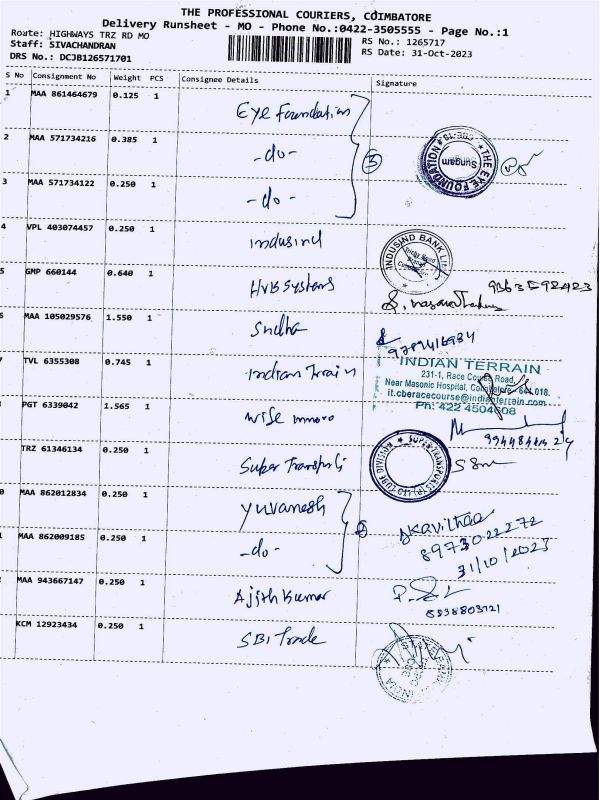 THE PROFESSIONAL COURIERS, COIMBATORE
Delivery Runsheet - MO - Phone No.:0422-3505555 - Page No.:1
Route: HIGHWAYS TRZ RD MO
RS No.: 1265717
Staff: SIVACHANDRAN
RS Date: 31-Oct-2023
DRS No.: DCJB126571701
S No Consignment No Weight PCS Consignee Details Signature
1 MAA 861464679 0.125 1 Eye Foundation
2 MAA 571734216 0.385 1 -do- 3
THE EYE FOUNDATION CBE-18 Sungam
3 MAA 571734122 0.250 1 -do-
4 VPL 403074457 0.250 1 Indusind
INDUSIND BANK Ltd
5 GMP 660144 0.640 1 HVB Systems
MAA 105029576 1.550 1 Sudha
9789416984
TVL 6355308 0.745 1 Indian Train
INDIAN TERRAIN
231-1, Race Course Road,
Near Masonic Hospital, Coimbatore - 641 018.
it.cberacecourse@indianterrain.com
Ph: 422 4504608
PGT 6339042 1.565 1 Wise
TRZ 61346134 0.250 1 Super Transports
SUPER TRANSPORTS (P) LTD CUBE DIVISION
0 MAA 862012834 0.250 1 Yuvanesh
Kavithaa
8973022272
1 MAA 862009185 0.250 1 -do-
31/10/2023
2 MAA 943667147 0.250 1 Ajith Kumar
KCM 12923434 0.250 1 SBI Trade